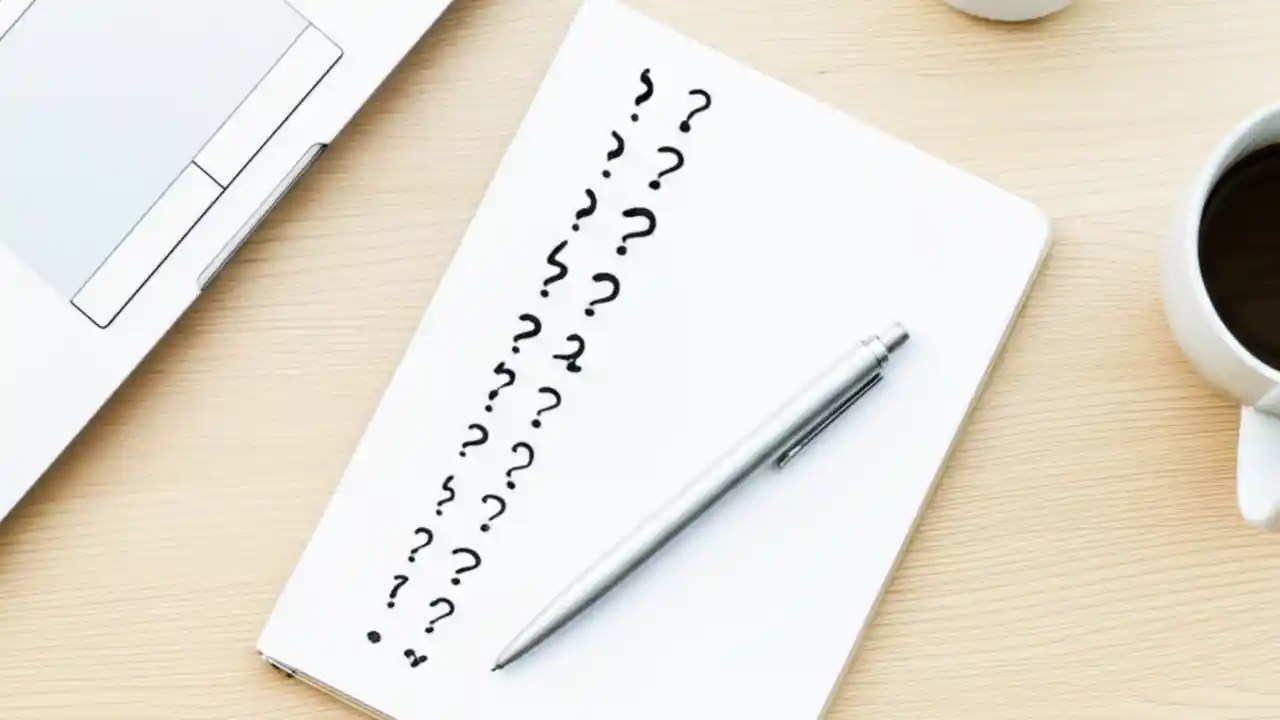 ?
? ?
? ?
?
?
? ?
? ?
?
? ?
? ?